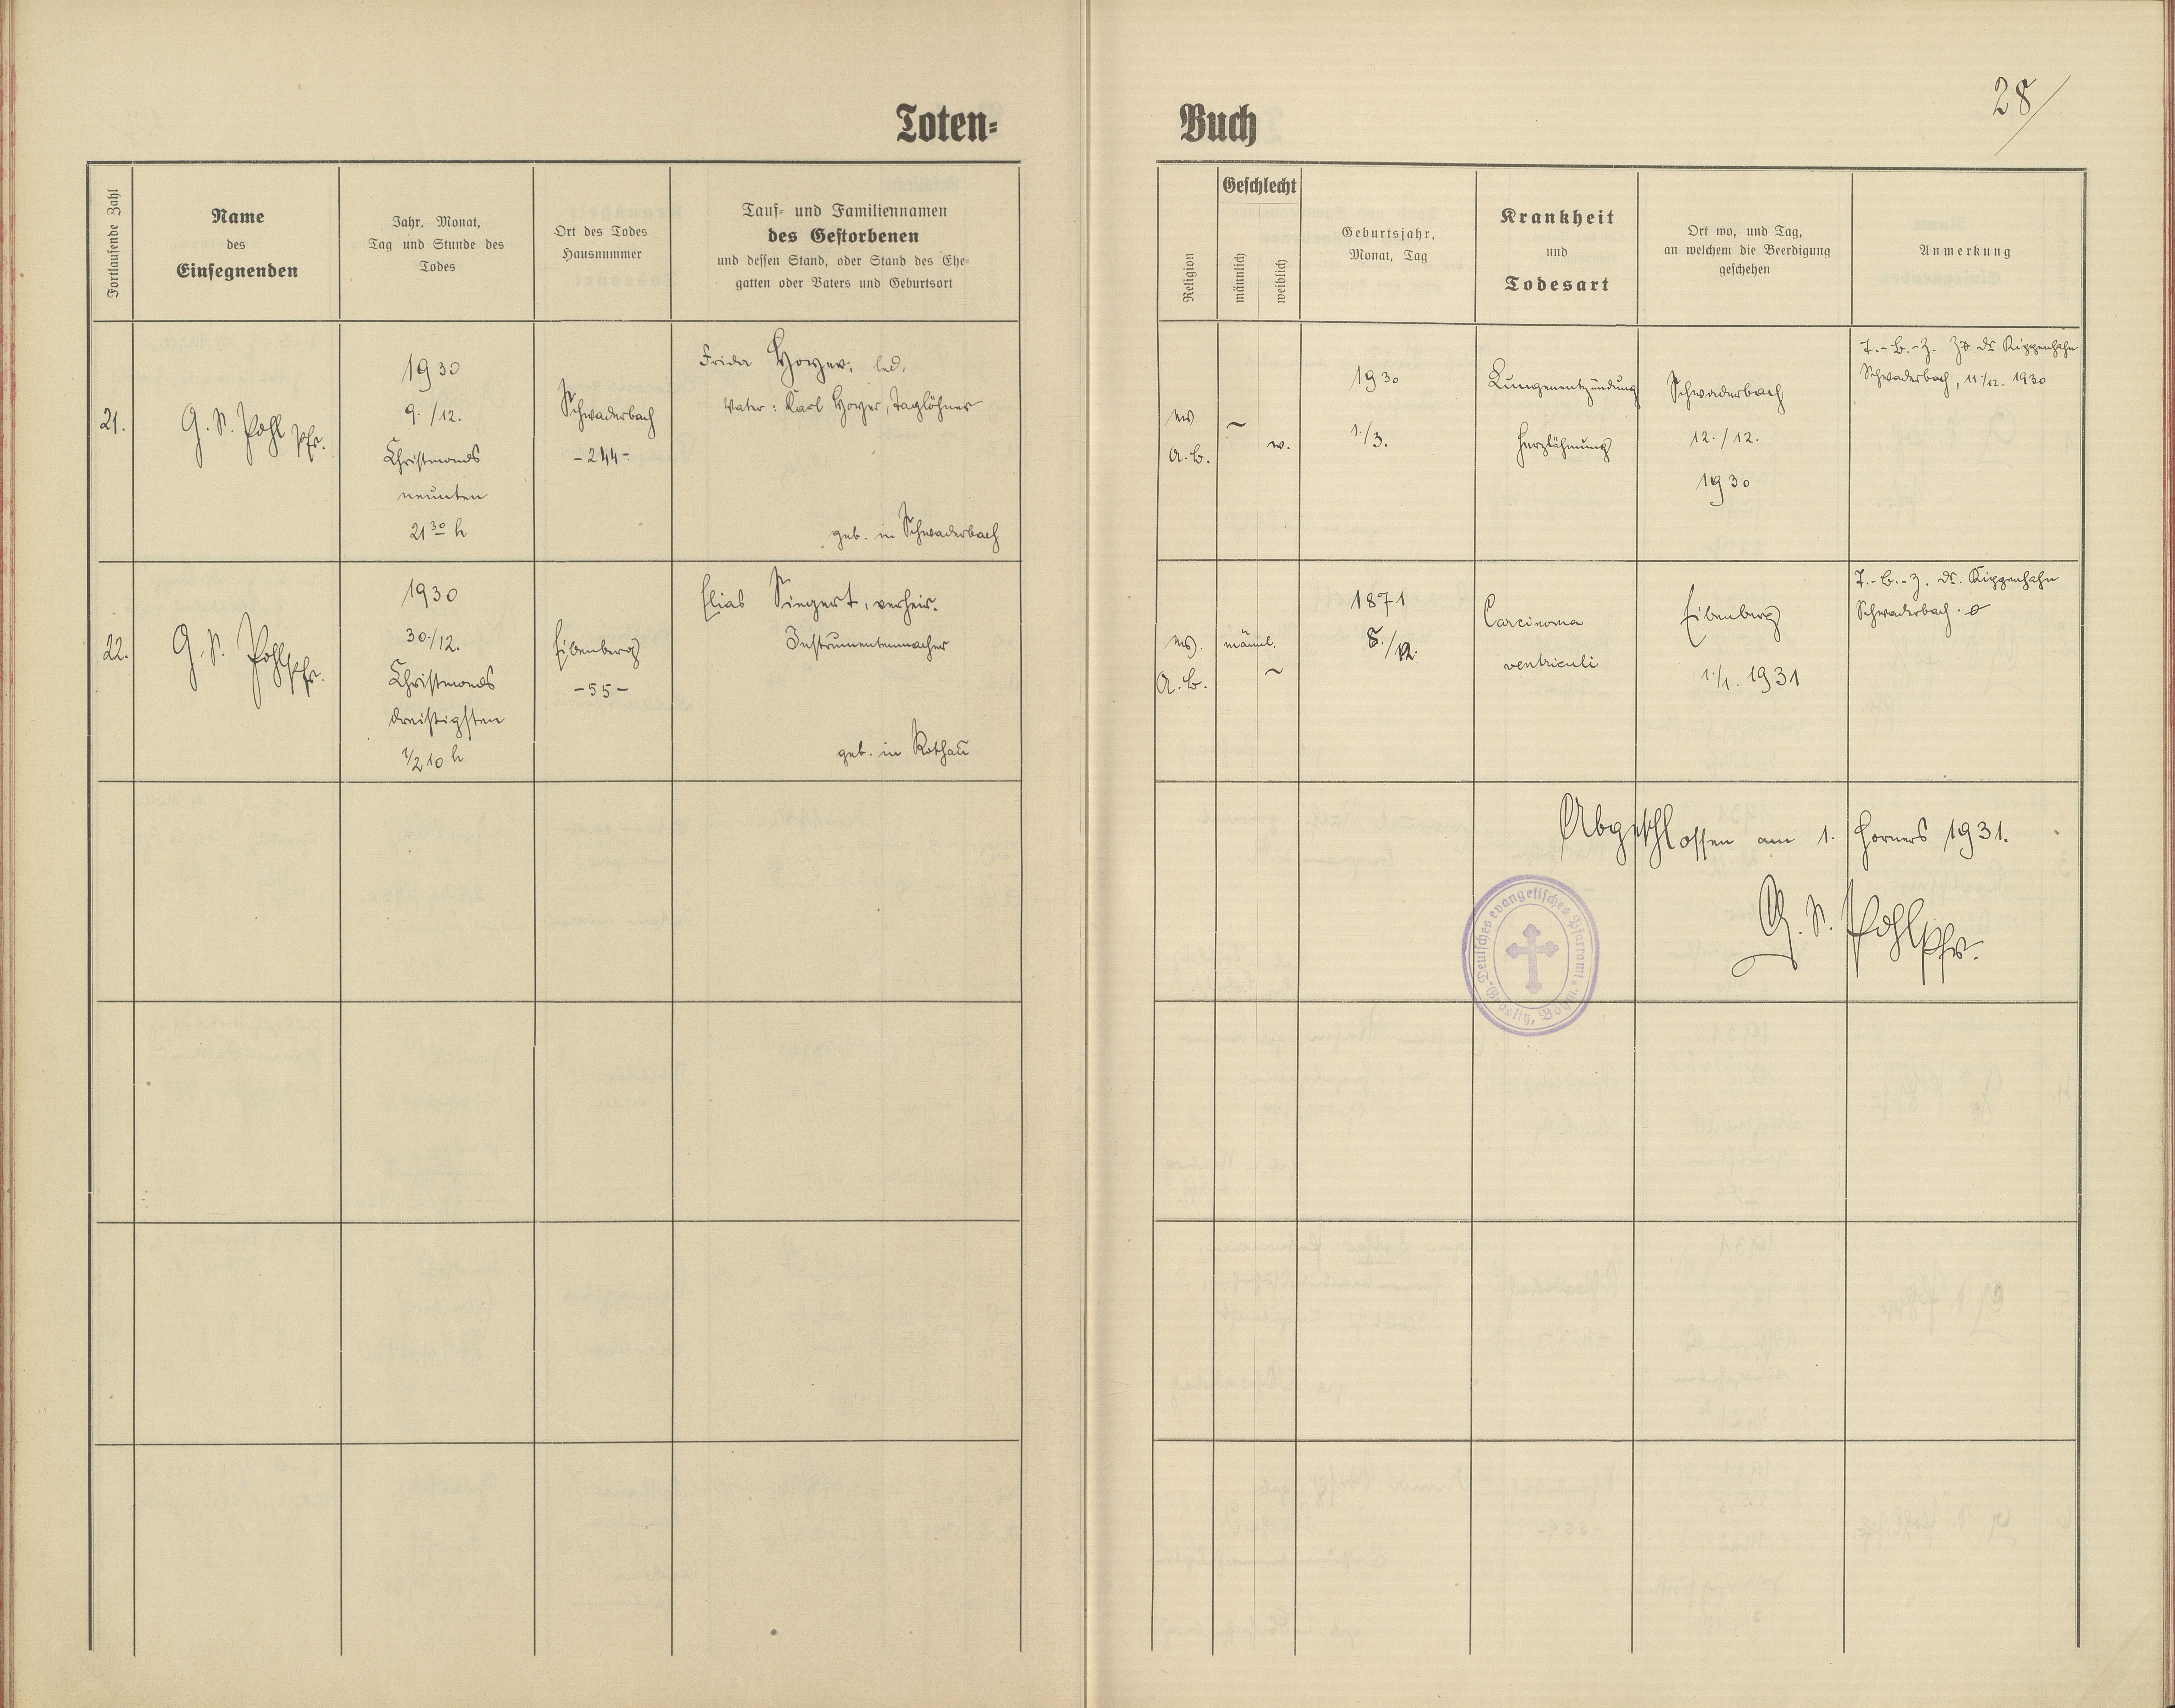 28
Toten-
Buch
Fortlaufende Zahl
Name
des
Einsegnenden
Jahr, Monat,
Tag und Stunde des
Todes
Ort des Todes
Hausnummer
Tauf- und Familiennamen
des Gestorbenen
und dessen Stand, oder Stand des Ehe-
gatten oder Vaters und Geburtsort
Religion
Geschlecht
männlich
weiblich
Geburtsjahr,
Monat, Tag
Krankheit
und
Todesart
Ort wo, und Tag,
an welchem die Beerdigung
geschehen
Anmerkung
21.
G. S. Pohl Pfr.
1930
9./12.
Christmonds
neunten
21 30 h
Schwaderbach
-244-
Frida Hoyer, led.
Vater: Karl Hoyer, Taglöhner
geb. in Schwaderbach
ev.
A.B.
~
w.
1930
1./3.
Lungenentzündung
Herzlähmung
Schwaderbach
12./12.
1930
T.-B.-Z. Dr Kippenhahn
Schwaderbach, 11./12. 1930
22.
G. S. Pohl Pfr.
1930
30./12.
Christmonds
dreißigsten
1/2 10 h
Eibenberg
-55-
Elias Siegert, verheir.
Instrumentenmacher
geb. in Rothau
ev.
A.B.
männl.
~
1871
8./12.
Carcinoma
ventriculi
Eibenberg
1./1. 1931
T.-B.-Z. Dr. Kippenhahn
Schwaderbach.
Abgeschlossen am 1. Horners 1931.
G. S. Pohl Pfr.
Deutsches evangelisches Pfarramt
* Graslitz, Böhm. *